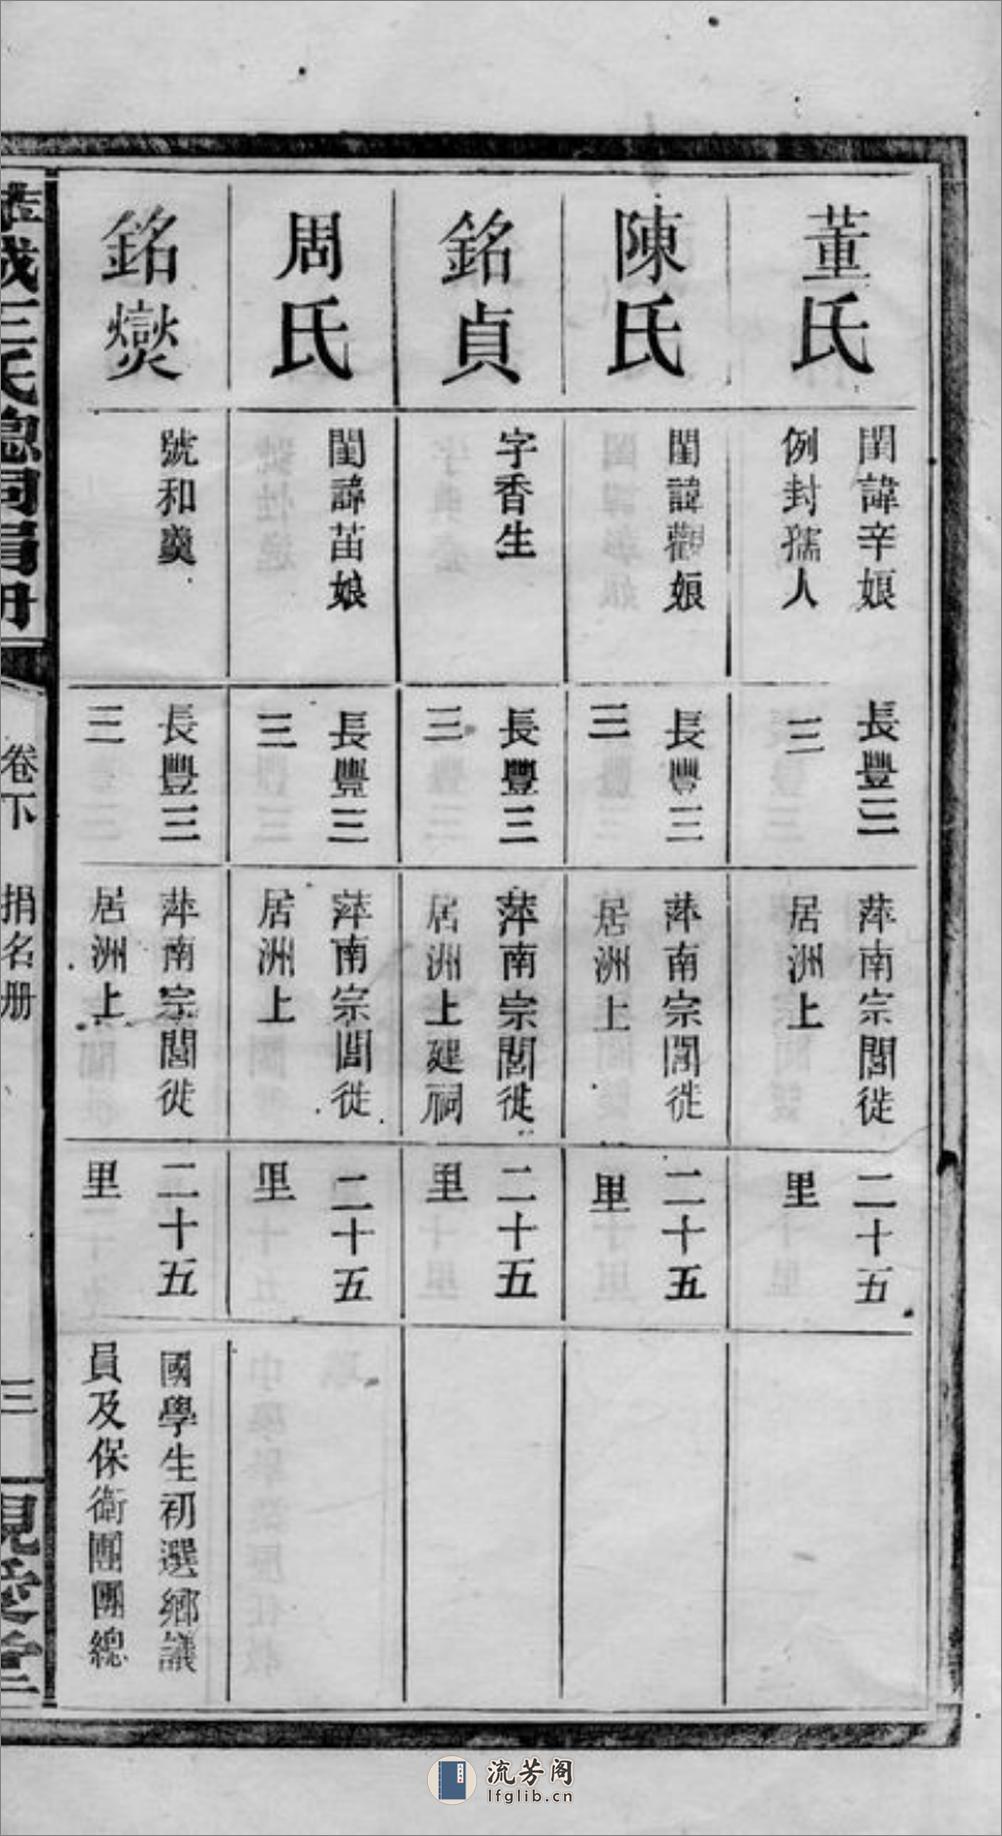 董氏
閨諱辛娘
例封孺人
長豐三
三
萍南宗閭徙
居洲上
二十五
里
陳氏
閨諱觀娘
長豐三
三
萍南宗閭徙
居洲上
二十五
里
銘貞
字香生
長豐三
三
萍南宗閭徙
居洲上建祠
二十五
里
周氏
閨諱苗娘
長豐三
三
萍南宗閭徙
居洲上
二十五
里
銘爕
號和羹
長豐三
三
萍南宗閭徙
居洲上
二十五
里
國學生初選鄉議
員及保衛團團總
城王氏總祠捐册
卷下
捐名册
三
流芳阁
lfglib.cn